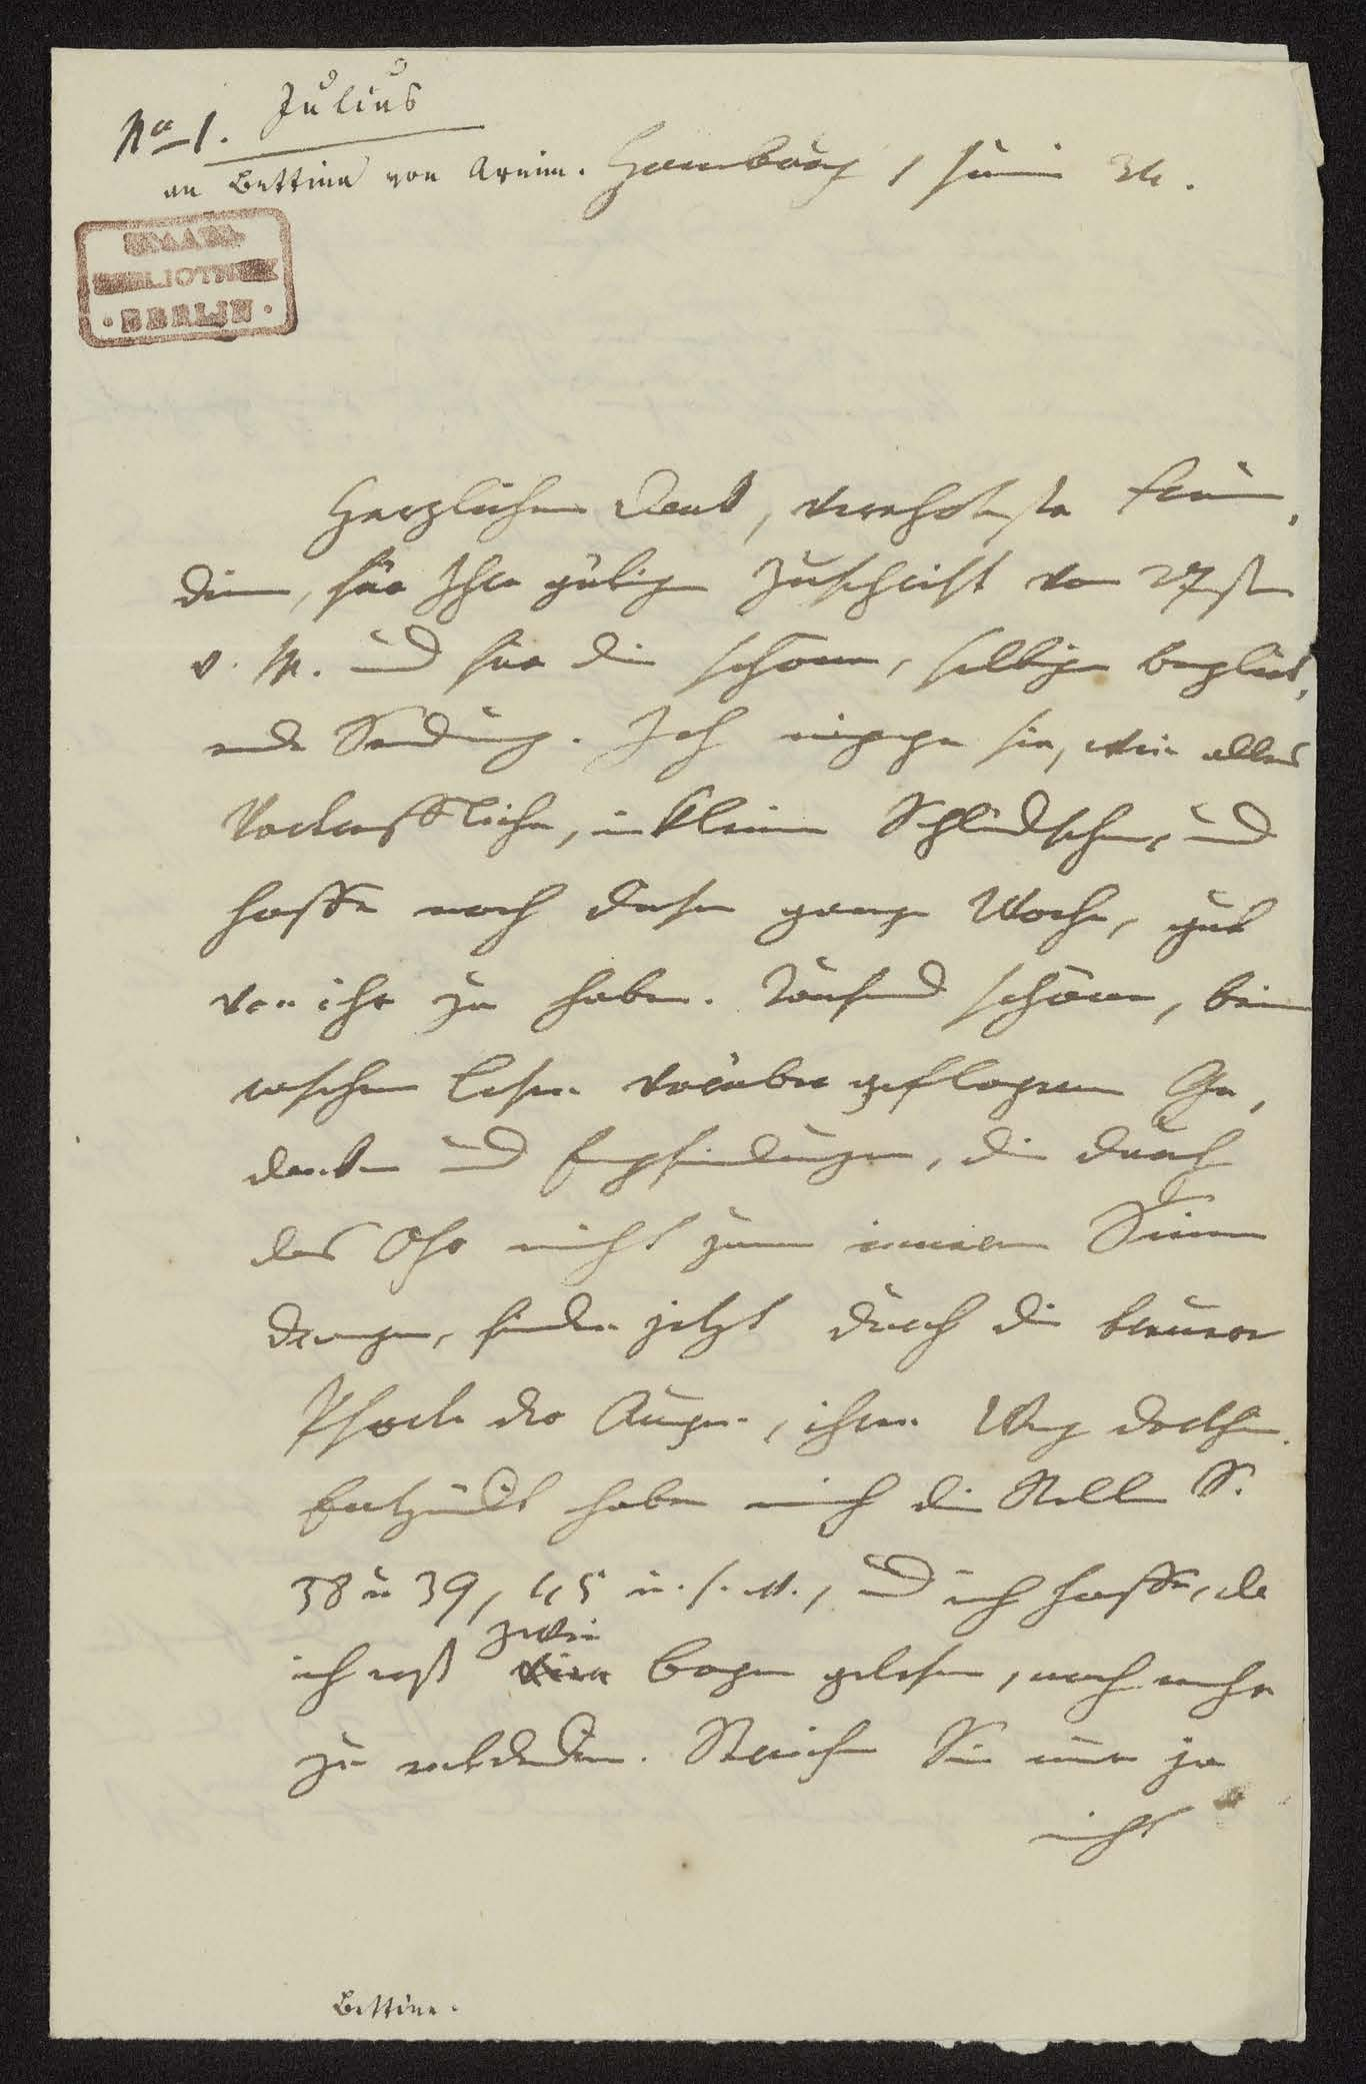 Julius
No 1.
an Bettina von Arnim. Hamburg 1 Juni 34.
STAATS
BIBLIOTHEK
BERLIN
Herzlichen Dank, verehrteste Freun,
din, für Ihre gütige Zuschrift vom 27sten
v. M. und für die schöne, selbige beglük,
ende Sendung. Ich sie, wie alles
Vortreffliche, in kleinen Schlückchen, und
hoffe noch diese ganze Woche, gut
von ihr zu haben. Tausend schöne, beim
raschen Lesen vorüber geflogene Ge,
danken und Empfindungen, die durch
das Ohr nicht zum inneren Sinn
drangen, finden jetzt durch die
Pforte der Augen, ihren Weg dorthin.
Entzückt haben mich die Stellen S.
38 u 39, 45 u. s. w., und ich hoffe, da
zwei
ich erst vier Bogen gelesen, noch mehr
zu entdecken. Streichen Sie nur ja
nicht
Bettine.